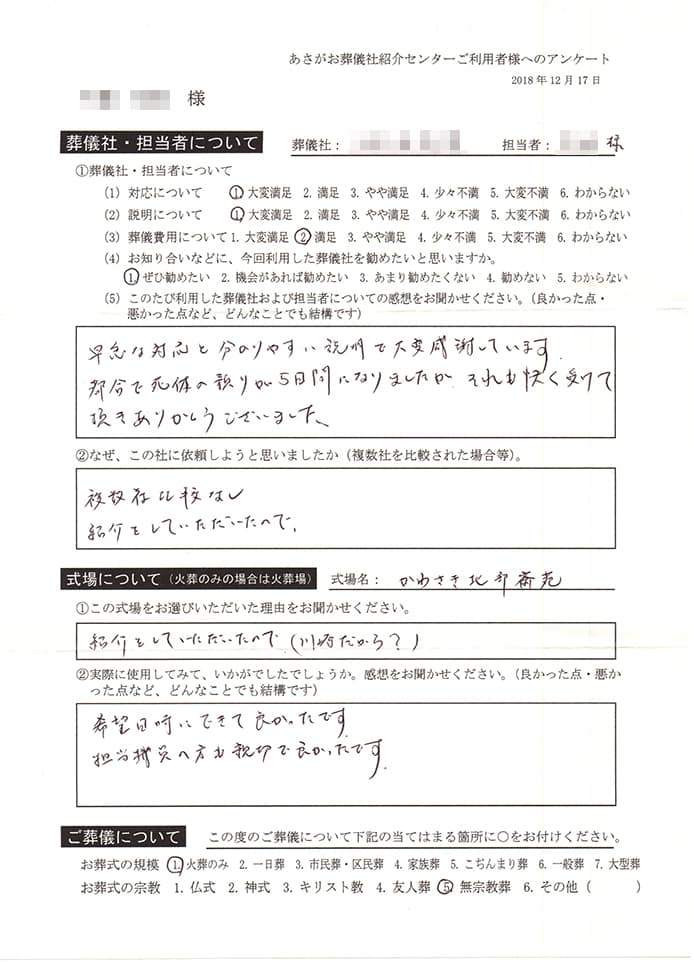 あさがお葬儀社紹介センターご利用者様へのアンケート
2018年12月17日
様
葬儀社・担当者について 葬儀社: 担当者: 様
①葬儀社・担当者について
(1) 対応について ① 大変満足 2. 満足 3. やや満足 4. 少々不満 5. 大変不満 6. わからない
(2) 説明について ① 大変満足 2. 満足 3. やや満足 4. 少々不満 5. 大変不満 6. わからない
(3) 葬儀費用について 1. 大変満足 ② 満足 3. やや満足 4. 少々不満 5. 大変不満 6. わからない
(4) お知り合いなどに、今回利用した葬儀社を勧めたいと思いますか。
① ぜひ勧めたい 2. 機会があれば勧めたい 3. あまり勧めたくない 4. 勧めない 5. わからない
(5) このたび利用した葬儀社および担当者についての感想をお聞かせください。(良かった点・
悪かった点など、どんなことでも結構です)
早急な対応と分かりやすい説明で大変感謝しています。
都合で死体の預りが5日間になりましたが、それも快く受けて
頂きありがとうございました。
②なぜ、この社に依頼しようと思いましたか(複数社を比較された場合等)。
複数社比較なし
紹介をしていただいたので。
式場について(火葬のみの場合は火葬場) 式場名: かわさき北部斎苑
①この式場をお選びいただいた理由をお聞かせください。
紹介をしていただいたので(川崎だから?)
②実際に使用してみて、いかがでしたでしょうか。感想をお聞かせください。(良かった点・悪か
った点など、どんなことでも結構です)
希望日時にできて良かったです。
担当職員の方も親切で良かったです。
ご葬儀について この度のご葬儀について下記の当てはまる箇所に○をお付けください。
お葬式の規模 ① 火葬のみ 2. 一日葬 3. 市民葬・区民葬 4. 家族葬 5. こぢんまり葬 6. 一般葬 7. 大型葬
お葬式の宗教 1. 仏式 2. 神式 3. キリスト教 4. 友人葬 ⑤ 無宗教葬 6. その他 ( )